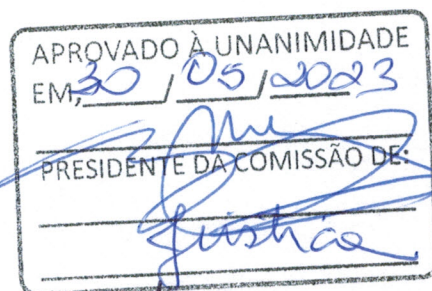 APROVADO À UNANIMIDADE
EM, 30 / 05 / 2023
PRESIDENTE DA COMISSÃO DE:
Justiça